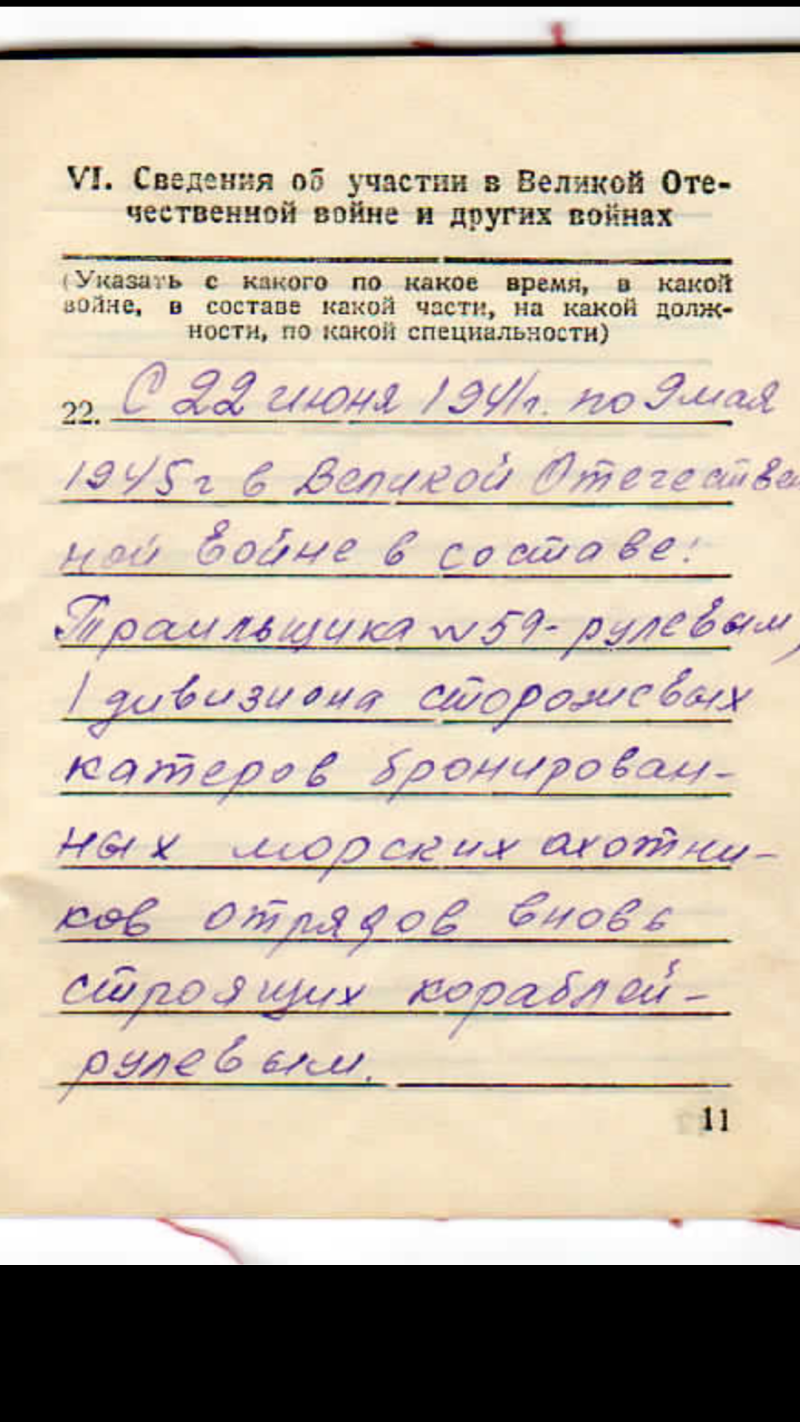 VI. Сведения об участии в Великой Оте-
чественной войне и других войнах
(Указать с какого по какое время, в какой
войне, в составе какой части, на какой долж-
ности, по какой специальности)
22. С 22 июня 1941г. по 9 мая
1945г в Великой Отечествен
ной войне в составе:
Траильщика №59- рулевым,
1 дивизиона сторожевых
катеров бронирован-
ных морских охотни-
ков отрядов вновь
строящих кораблей-
рулевым.
11